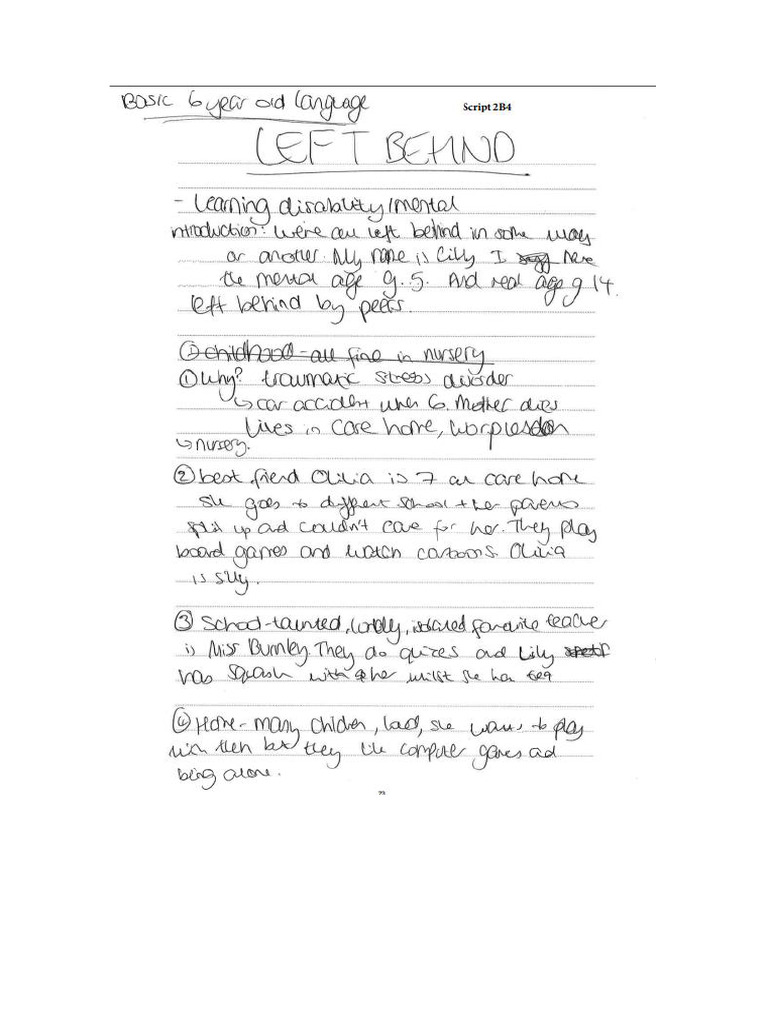 Basic 6 year old language
Script 2B4
LEFT BEHIND
- Learning disability/mental
introduction: We're all left behind in some way
or another. My name is Lilly I have
the mental age of 5. And real age of 14.
left behind by peers.
① childhood - all fine in nursery
① Why? traumatic stress disorder
↳ car accident when 6. Mother dies
Lives in care home, Worplesdon
↳ nursery.
② best friend Olilia is 7 at care home
she goes to different school + her parents
split up and couldn't care for her. They play
board games and watch cartoons. Olivia
is silly.
③ School - taunted, lonely, isolated favourite teacher
is Miss Burnley. They do quizes and Lilly
has squash with her whilst she has tea
④ Home - many children, loud, she wants to play
with them but they like computer games and
being alone.